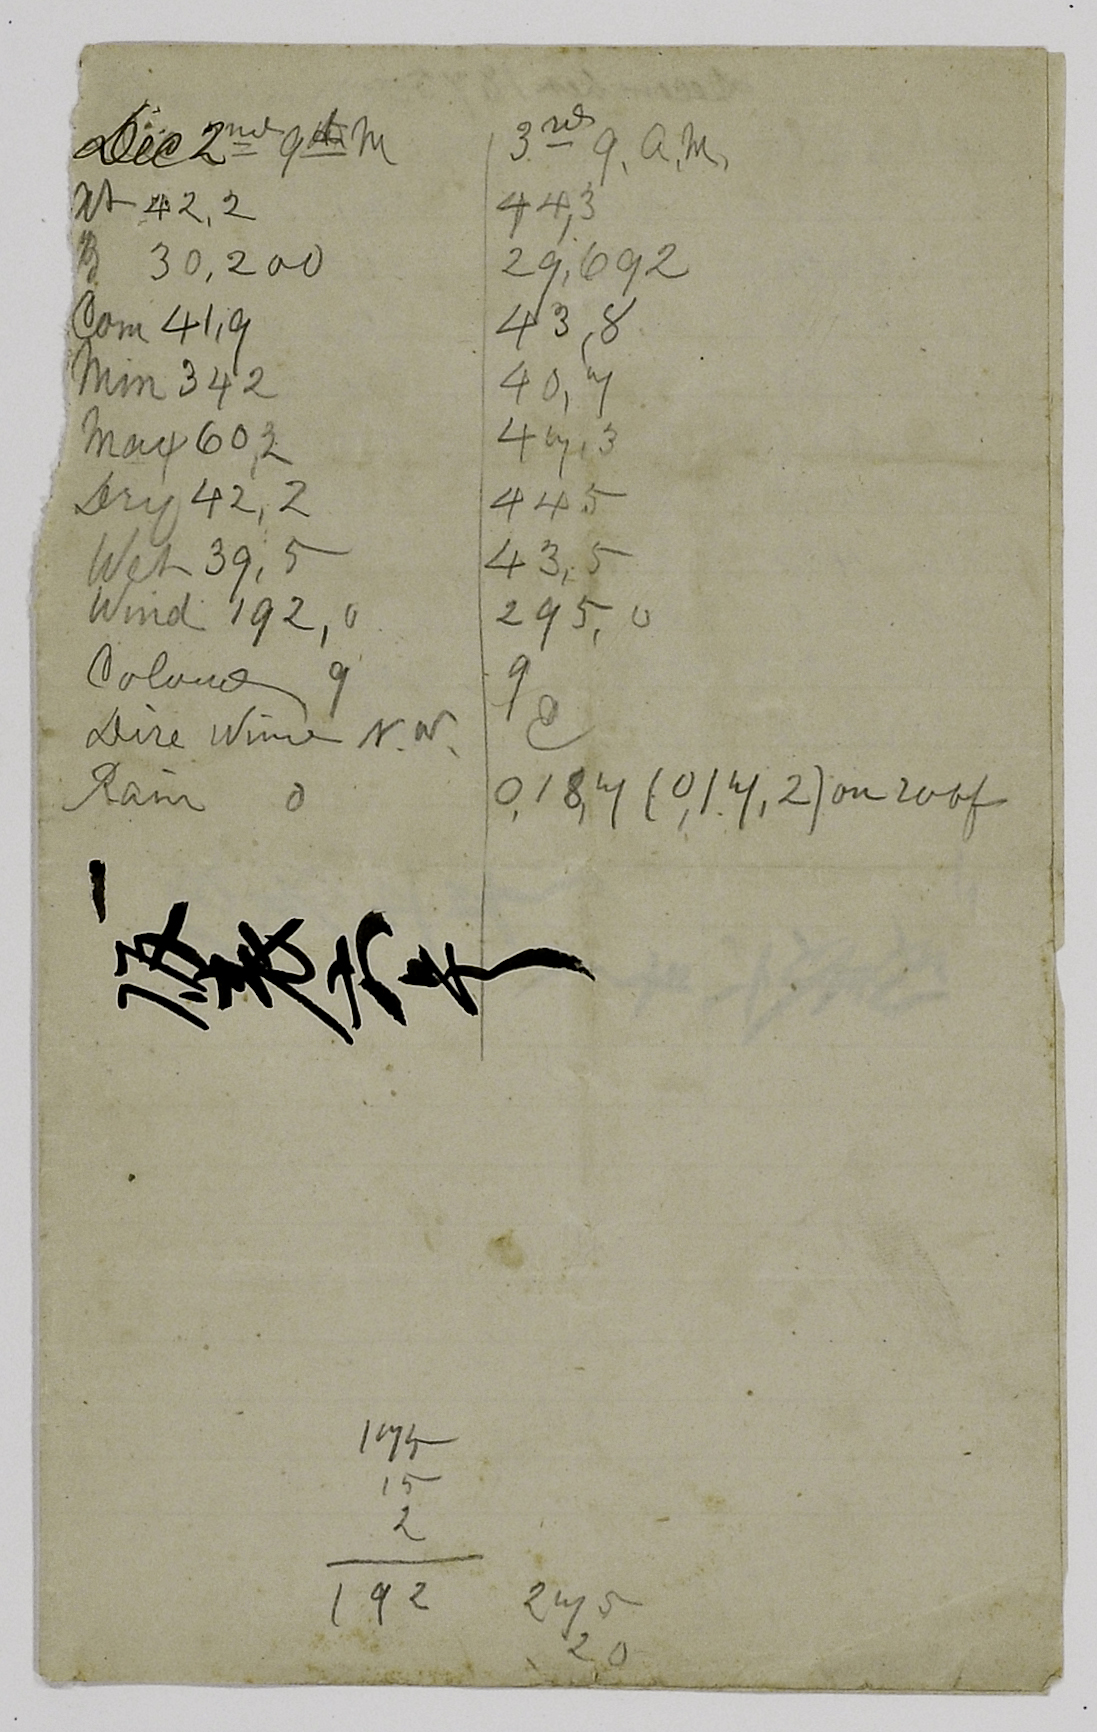 Dec 2nd 9 A M | 3rd 9, A.M,
Xt 42,2 | 44,3
B 30,200 | 29,692
Com 41,9 | 43,8
Min 342 | 40,7
Max 60,2 | 47,3
Dry 42,2 | 445
Wet 39,5 | 43,5
Wind 192,0 | 295,0
9 | 9
Dire N.W. | C
Rain 0 | 0,18,7 (0,17,2) on roof
175
15
2
192 275
20